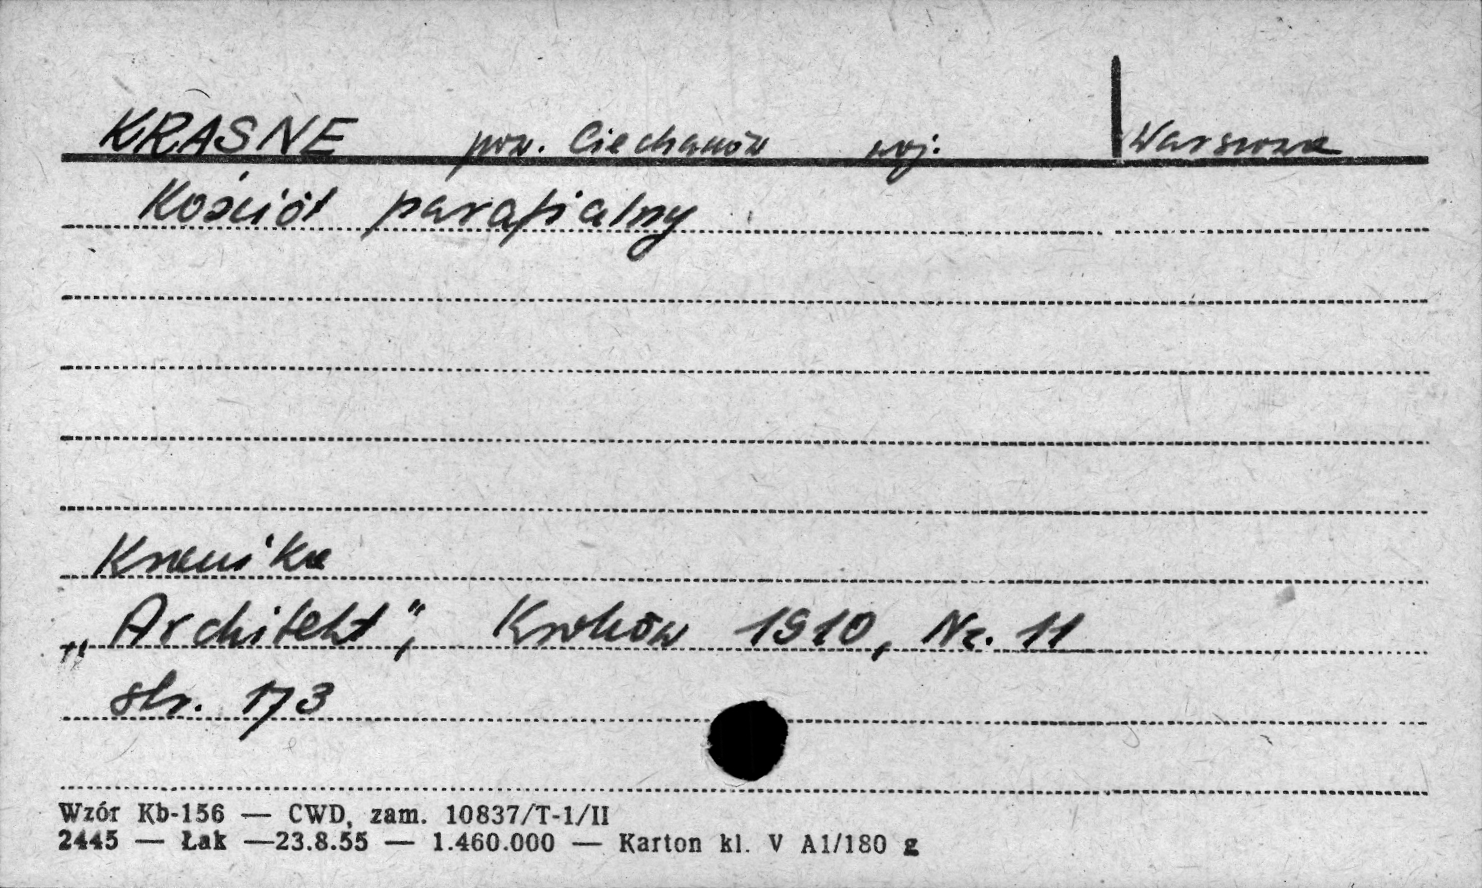 KRASNE pow. Ciechanów woj. Warszawa
Kościół parafialny
Kronika
„Architekt", Kraków 1910, Nr. 11
str. 173
Wzór Kb-156 — CWD, zam. 10837/T-1/II
2445 — Łak —23.8.55 — 1.460.000 — Karton kl. V A1/180 g